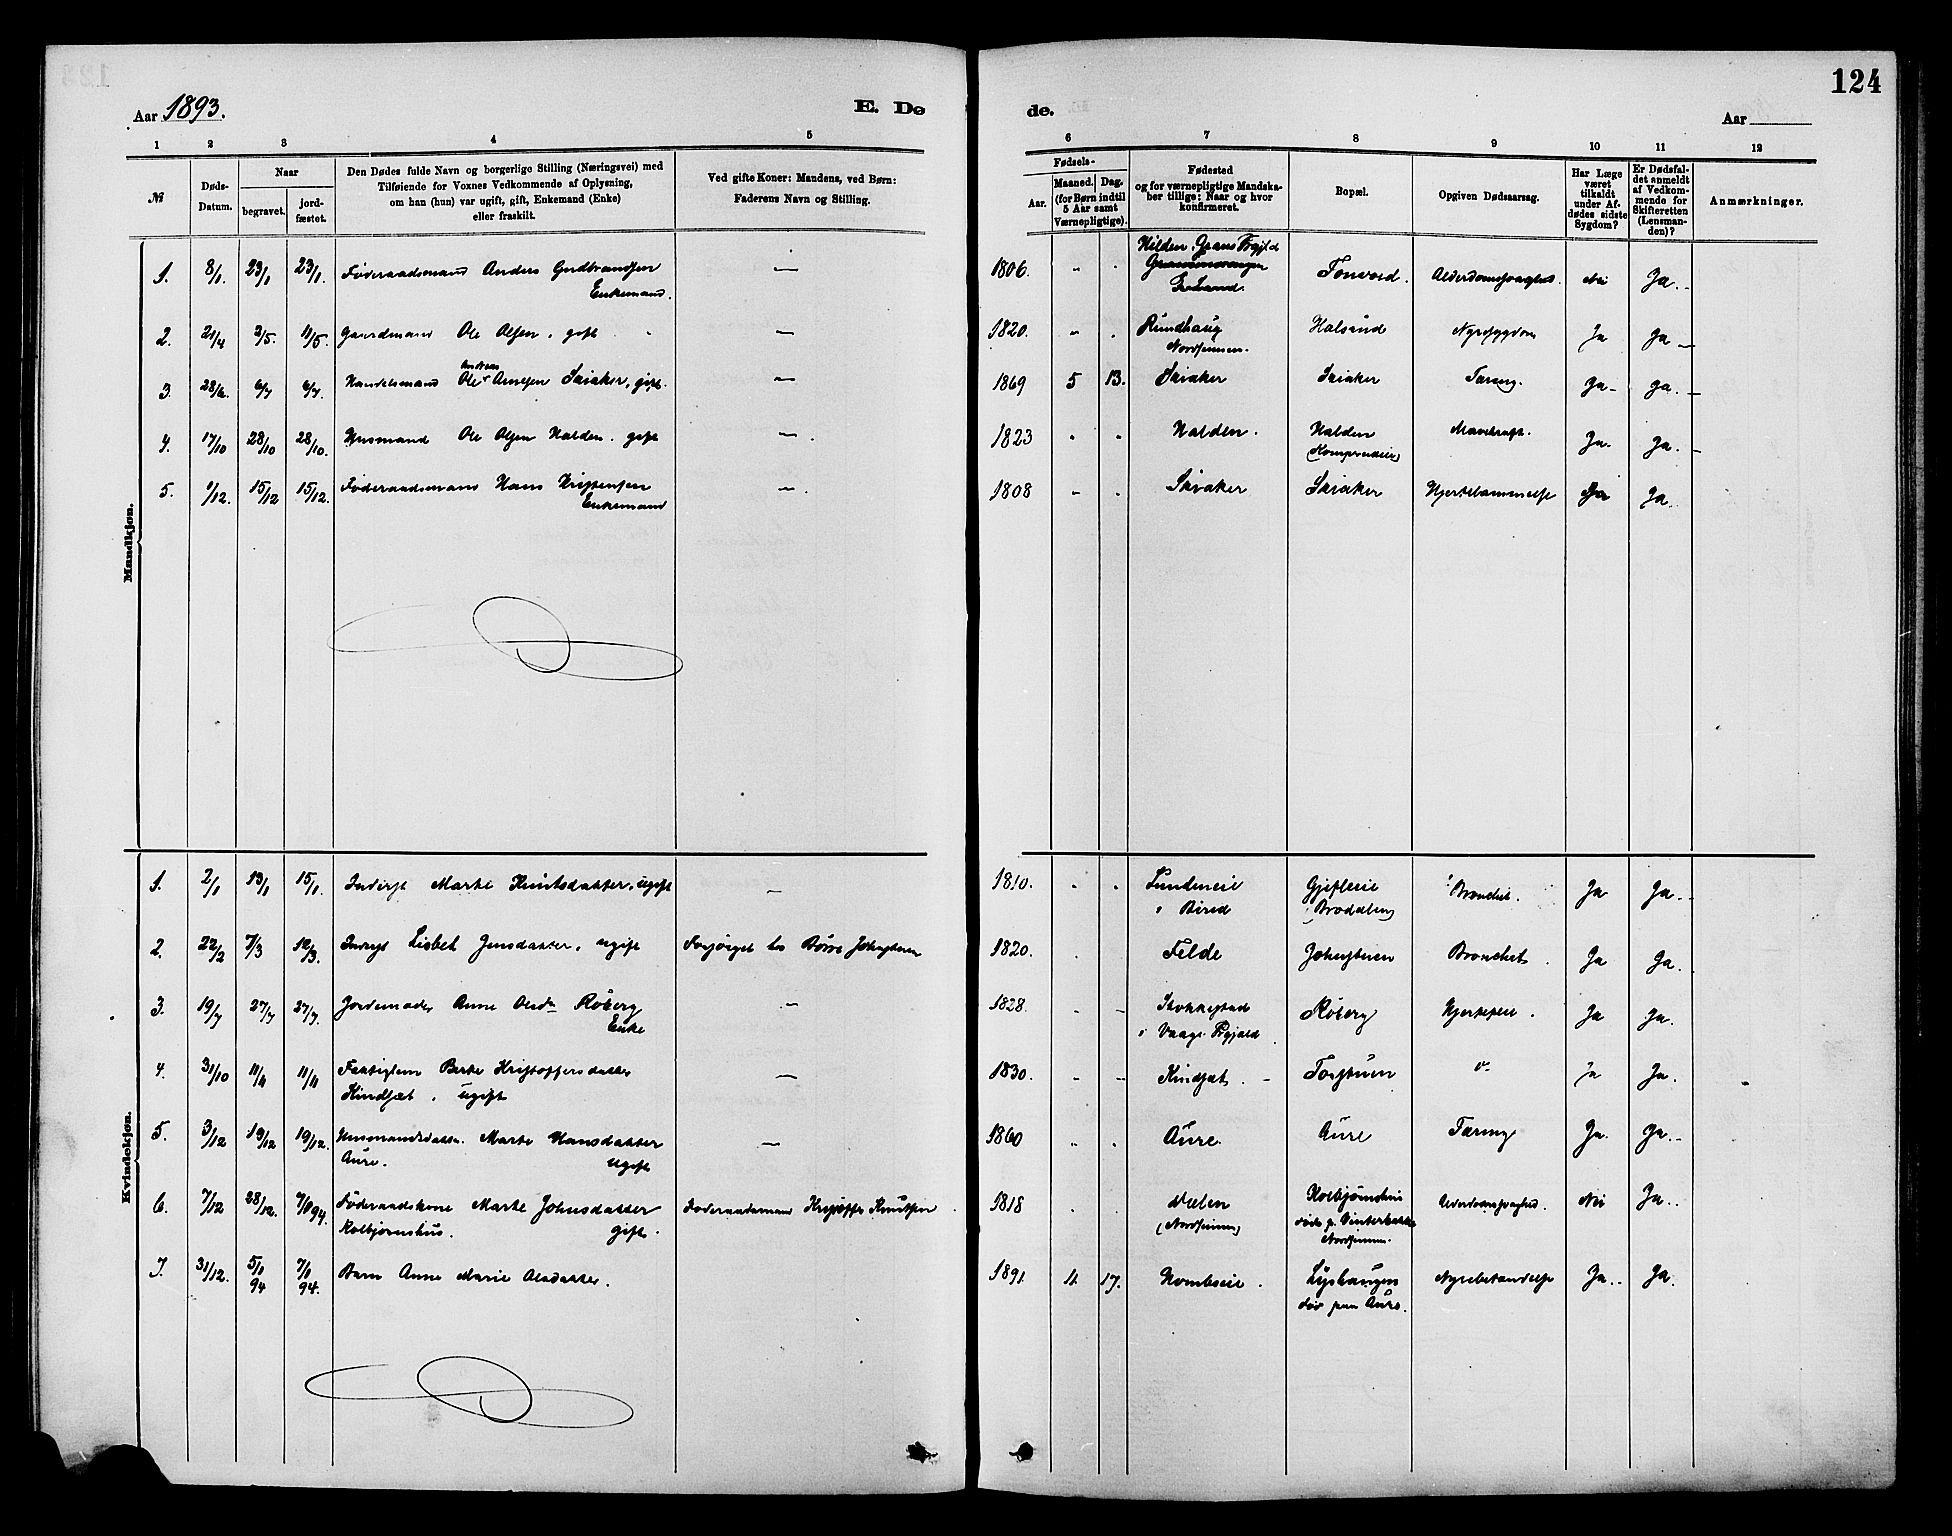 124
Aar 1893.
E. Dø
de.
Aar
1 2 3 4 5 6 7 8 9 10 11 12
№
Døds-Datum.
Naar
begravet.
jord-fæstet.
Den Dødes fulde Navn og borgerlige Stilling (Næringsvei) med
Tilføiende for Voxnes Vedkommende af Oplysning,
om han (hun) var ugift, gift, Enkemand (Enke)
eller fraskilt.
Ved gifte Koner: Mandens, ved Børn:
Faderens Navn og Stilling.
Fødsels-
Aar.
Maaned.
Dag.
(for Børn indtil
5 Aar samt
Værnepligtige).
Fødested
og for værnepligtige Mandska-
ber tillige: Naar og hvor
konfirmeret.
Bopæl.
Opgiven Dødsaarsag.
Har Læge
været
tilkaldt
under Af-
dødes sidste
Sygdom?
Er Dødsfal-
det anmeldt
af Vedkom-
mende for
Skifteretten
(Lensman-
den)?
Anmærkninger.
Mandkjøn.
1. 8/1. 23/1 23/1. Føderaadsmand Anders Gudbrandsen — 1806. " . Hilden, Grans Prgjeld Tonvold. Alderdomssvaghed. Nei Ja.
Enkemand.
2. 21/4 2/5. 11/5. Gaardmand Ole Olsen, gift — 1820. " . Rundhaug Halsund Nyresygdom Ja Ja
Nordsinnen.
3. 28/6. 6/7 6/7. Handelsmand Ole Andreas Arnesen Skiaker, gift. — 1869 5 13. Skiaker Skiaker Tæring. Ja Ja.
4. 17/10 28/10 28/10. Husmand Ole Olsen Halden. gift —. 1823 " " Halden. Halden Mavekræft. Ja. Ja.
5. 1/12. 15/12 15/12. Føderaadsmand Hans Kristensen —. 1808 " . Skiaker Skiaker Hjertelammelse Ja Ja.
Enkemand
Kvindekjøn.
1. 2/1 13/1 15/1. Inderst Marte Knutsdatter, ugift — 1810. . . Lundeneie Gjefleeie Bronchit. Ja Ja.
i Birid (Broddalen)
2. 22/2 7/3 12/3. Inderst Lisbet Jensdatter, ugift Forsørget hos Børre Johnstuen 1820. . . Felde Johnstuen Bronchit. Ja Ja.
3. 19/7 27/7 27/7. Jordemoder Anne Olsdr Røberg — 1828. " Stokkestad Røberg Hjertefeil. Ja Ja.
Enke i Vaage Prgjeld
4. 31/10 11/11 11/11 Fattiglem Berte Kristoffersdatter — 1830. " Kindset. Torstuen d⁰ Ja Ja.
Kindset, ugift
5. 3/12 19/12 19/12. Husmandsdatter. Marte Hansdatter — 1860 . . Aure. Aure Tæring Ja. Ja.
Aure. ugift
6. 7/12 28/12. 7/1 94. Føderaadskone Marte Johnsdatter Føderaadsmand Kristoffer Knutsen 1818 . . (Nordsinnen) Kolbjørnshus Alderdomssvaghed. Nei Ja.
Kolbjørnshus. gift. døde p. Vinterbakke
Nordsinnen.
7. 31/12. 5/1 94 7/1 94. Barn Anne Marie Olsdatter. 1891 11 17. Hombseie. Lyshaugen Nyrebetændelse Ja. Ja.
død paa Aure.